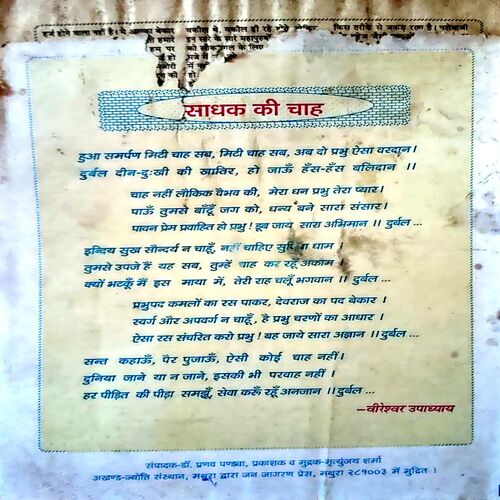 हर्ज होने वाला नहीं है। ये आपका बेकार वकील थे, वकील ही रहे किस तरीके से जकड़ रखा है।
साधक की चाह
हुआ समर्पण मिटी चाह सब, मिटी चाह सब, अब दो प्रभु ऐसा वरदान।
दुर्बल दीन-दुःखी की खातिर, हो जाऊँ हँस-हँस बलिदान ।।
चाह नहीं लौकिक वैभव की, मेरा धन प्रभु तेरा प्यार।
पाऊँ तुमसे बाँटूँ जग को, धन्य बने सारा संसार।
पावन प्रेम प्रवाहित हो प्रभु ! डूब जाय सारा अभिमान ।। दुर्बल ...
इन्दिय सुख सौन्दर्य न चाहूँ, नहीं चाहिए सुविधा धाम ।
तुमसे उपजे हैं यह सब, तुम्हें चाह कर रहूँ अकाम ।
क्यों भटकूँ मैं इस माया में, तेरी राह चलूँ भगवान ।। दुर्बल ...
प्रभुपद कमलों का रस पाकर, देवराज का पद बेकार ।
स्वर्ग और अपवर्ग न चाहूँ, हे प्रभु चरणों का आधार ।
ऐसा रस संचरित करो प्रभु ! बह जाये सारा अज्ञान ।। दुर्बल ...
सन्त कहाऊँ, पैर पुजाऊँ, ऐसी कोई चाह नहीं।
दुनिया जाने या न जाने, इसकी भी परवाह नहीं ।
हर पीड़ित की पीड़ा समझूँ, सेवा करूँ रहूँ अनजान ।। दुर्बल ...
—वीरेश्वर उपाध्याय
संपादक-डॉ. प्रणव पण्ड्या, प्रकाशक व मुद्रक-मृत्युंजय शर्मा
अखण्ड-ज्योति संस्थान, मथुरा द्वारा जन जागरण प्रेस, मथुरा २८१००३ में मुद्रित ।